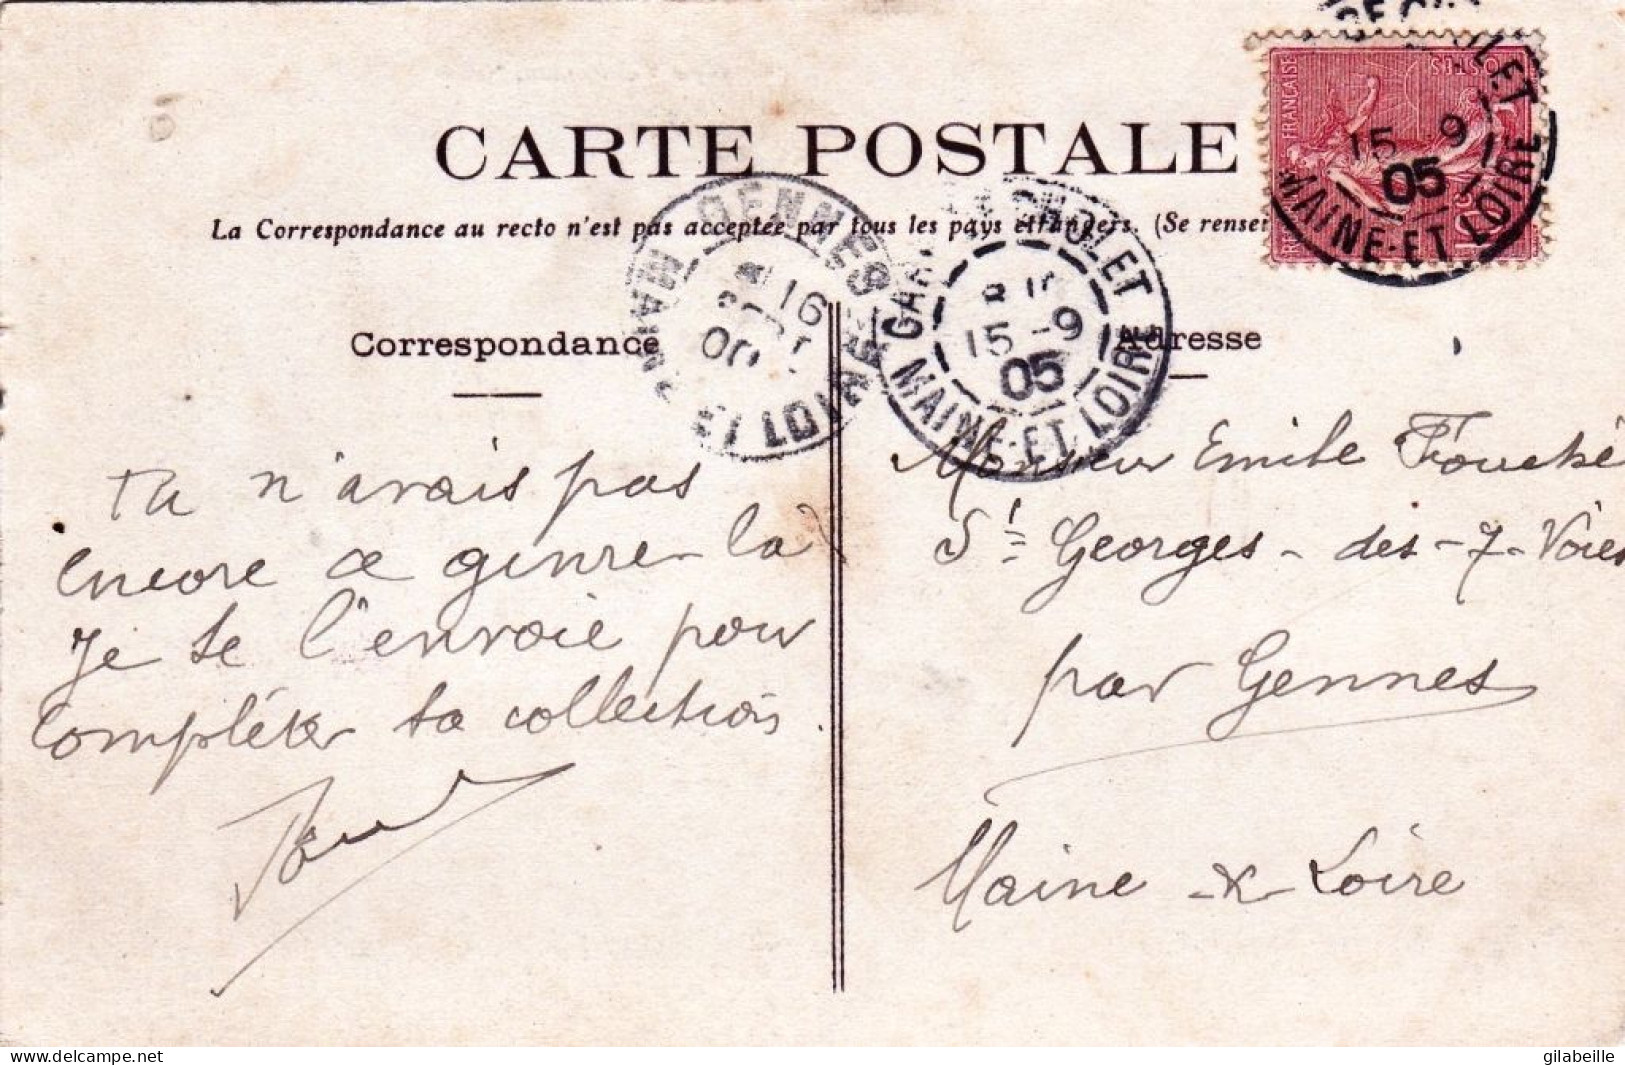 CARTE POSTALE
La Correspondance au recto n'est pas acceptée par tous les pays étrangers. (Se rensei
Correspondance
Adresse
RÉPUBLIQUE FRANÇAISE
POSTES
CHOLET
15 9
05
MAINE-ET-LOIRE
GENNES
16
MAINE-ET-LOIRE
GARE DE CHOLET
15 -9
05
MAINE-ET-LOIRE
Tu n'avais pas
encore ce genre-là
Je te l'envoie pour
compléter ta collection.
Monsieur Emile Fouché
St Georges-des-7-Voies
par Gennes
Maine & Loire
delcampe.net
gilabeille